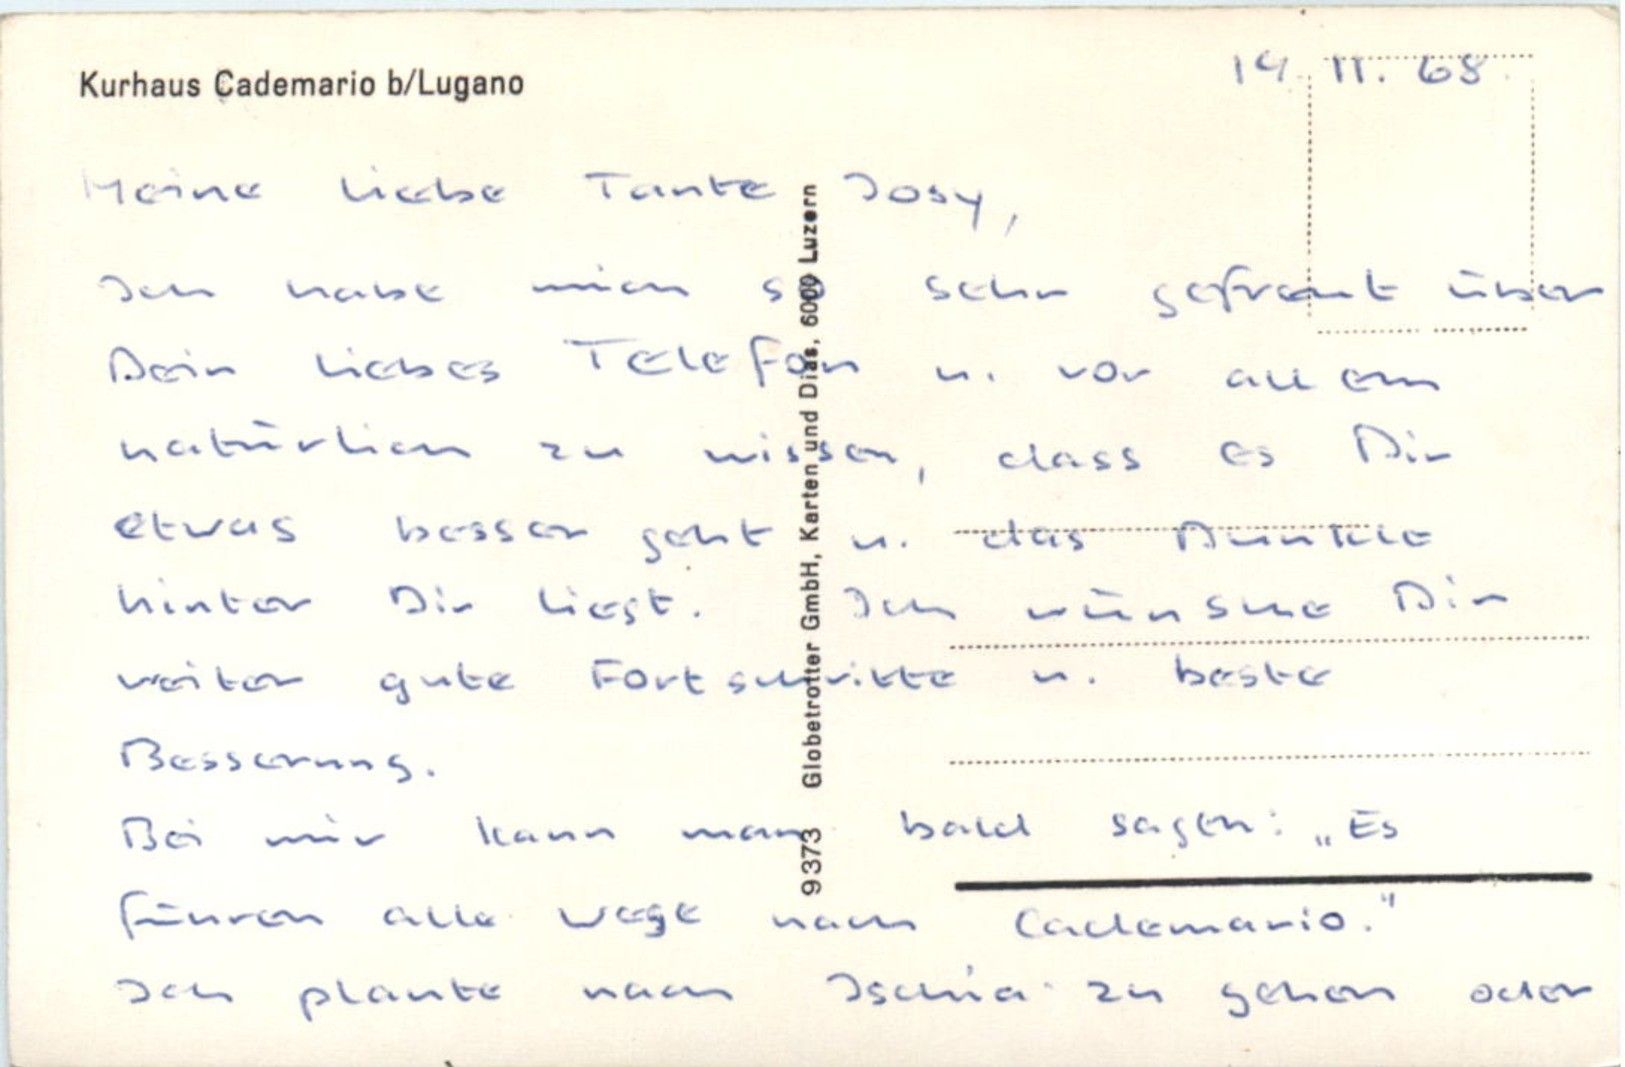 Kurhaus Cademario b/Lugano
19. 11. 68.
Meine liebe Tante Josy,
Ich habe mich so sehr gefreut über
Dein liebes Telefon u. vor allem
natürlich zu wissen, dass es Dir
etwas besser geht u. das Dunkle
hinter Dir liegt. Ich wünsche Dir
weiter gute Fortschritte u. beste
Besserung.
Bei mir kann man bald sagen: „Es
führen alle Wege nach Cademario."
Ich plante nach Ischia zu gehen oder
9373 Globetrotter GmbH, Karten und Dias, 6000 Luzern